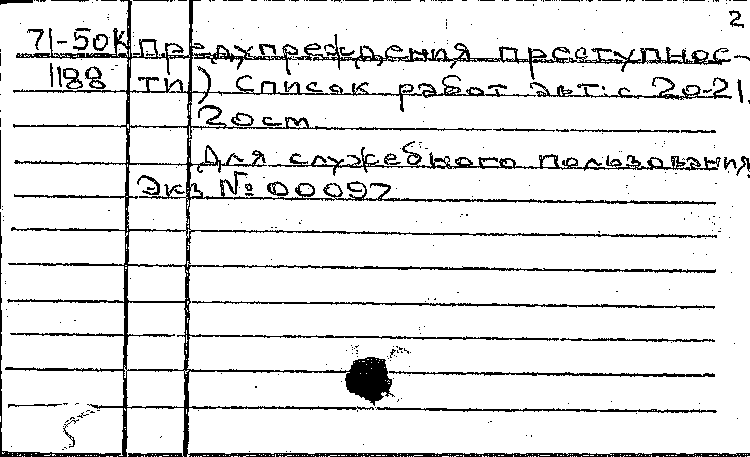 2
71-50К Предупреждения преступнос-
1188 ти) Список работ авт: с 20-21.
20 см
Для служебного пользования
Экз № 00097